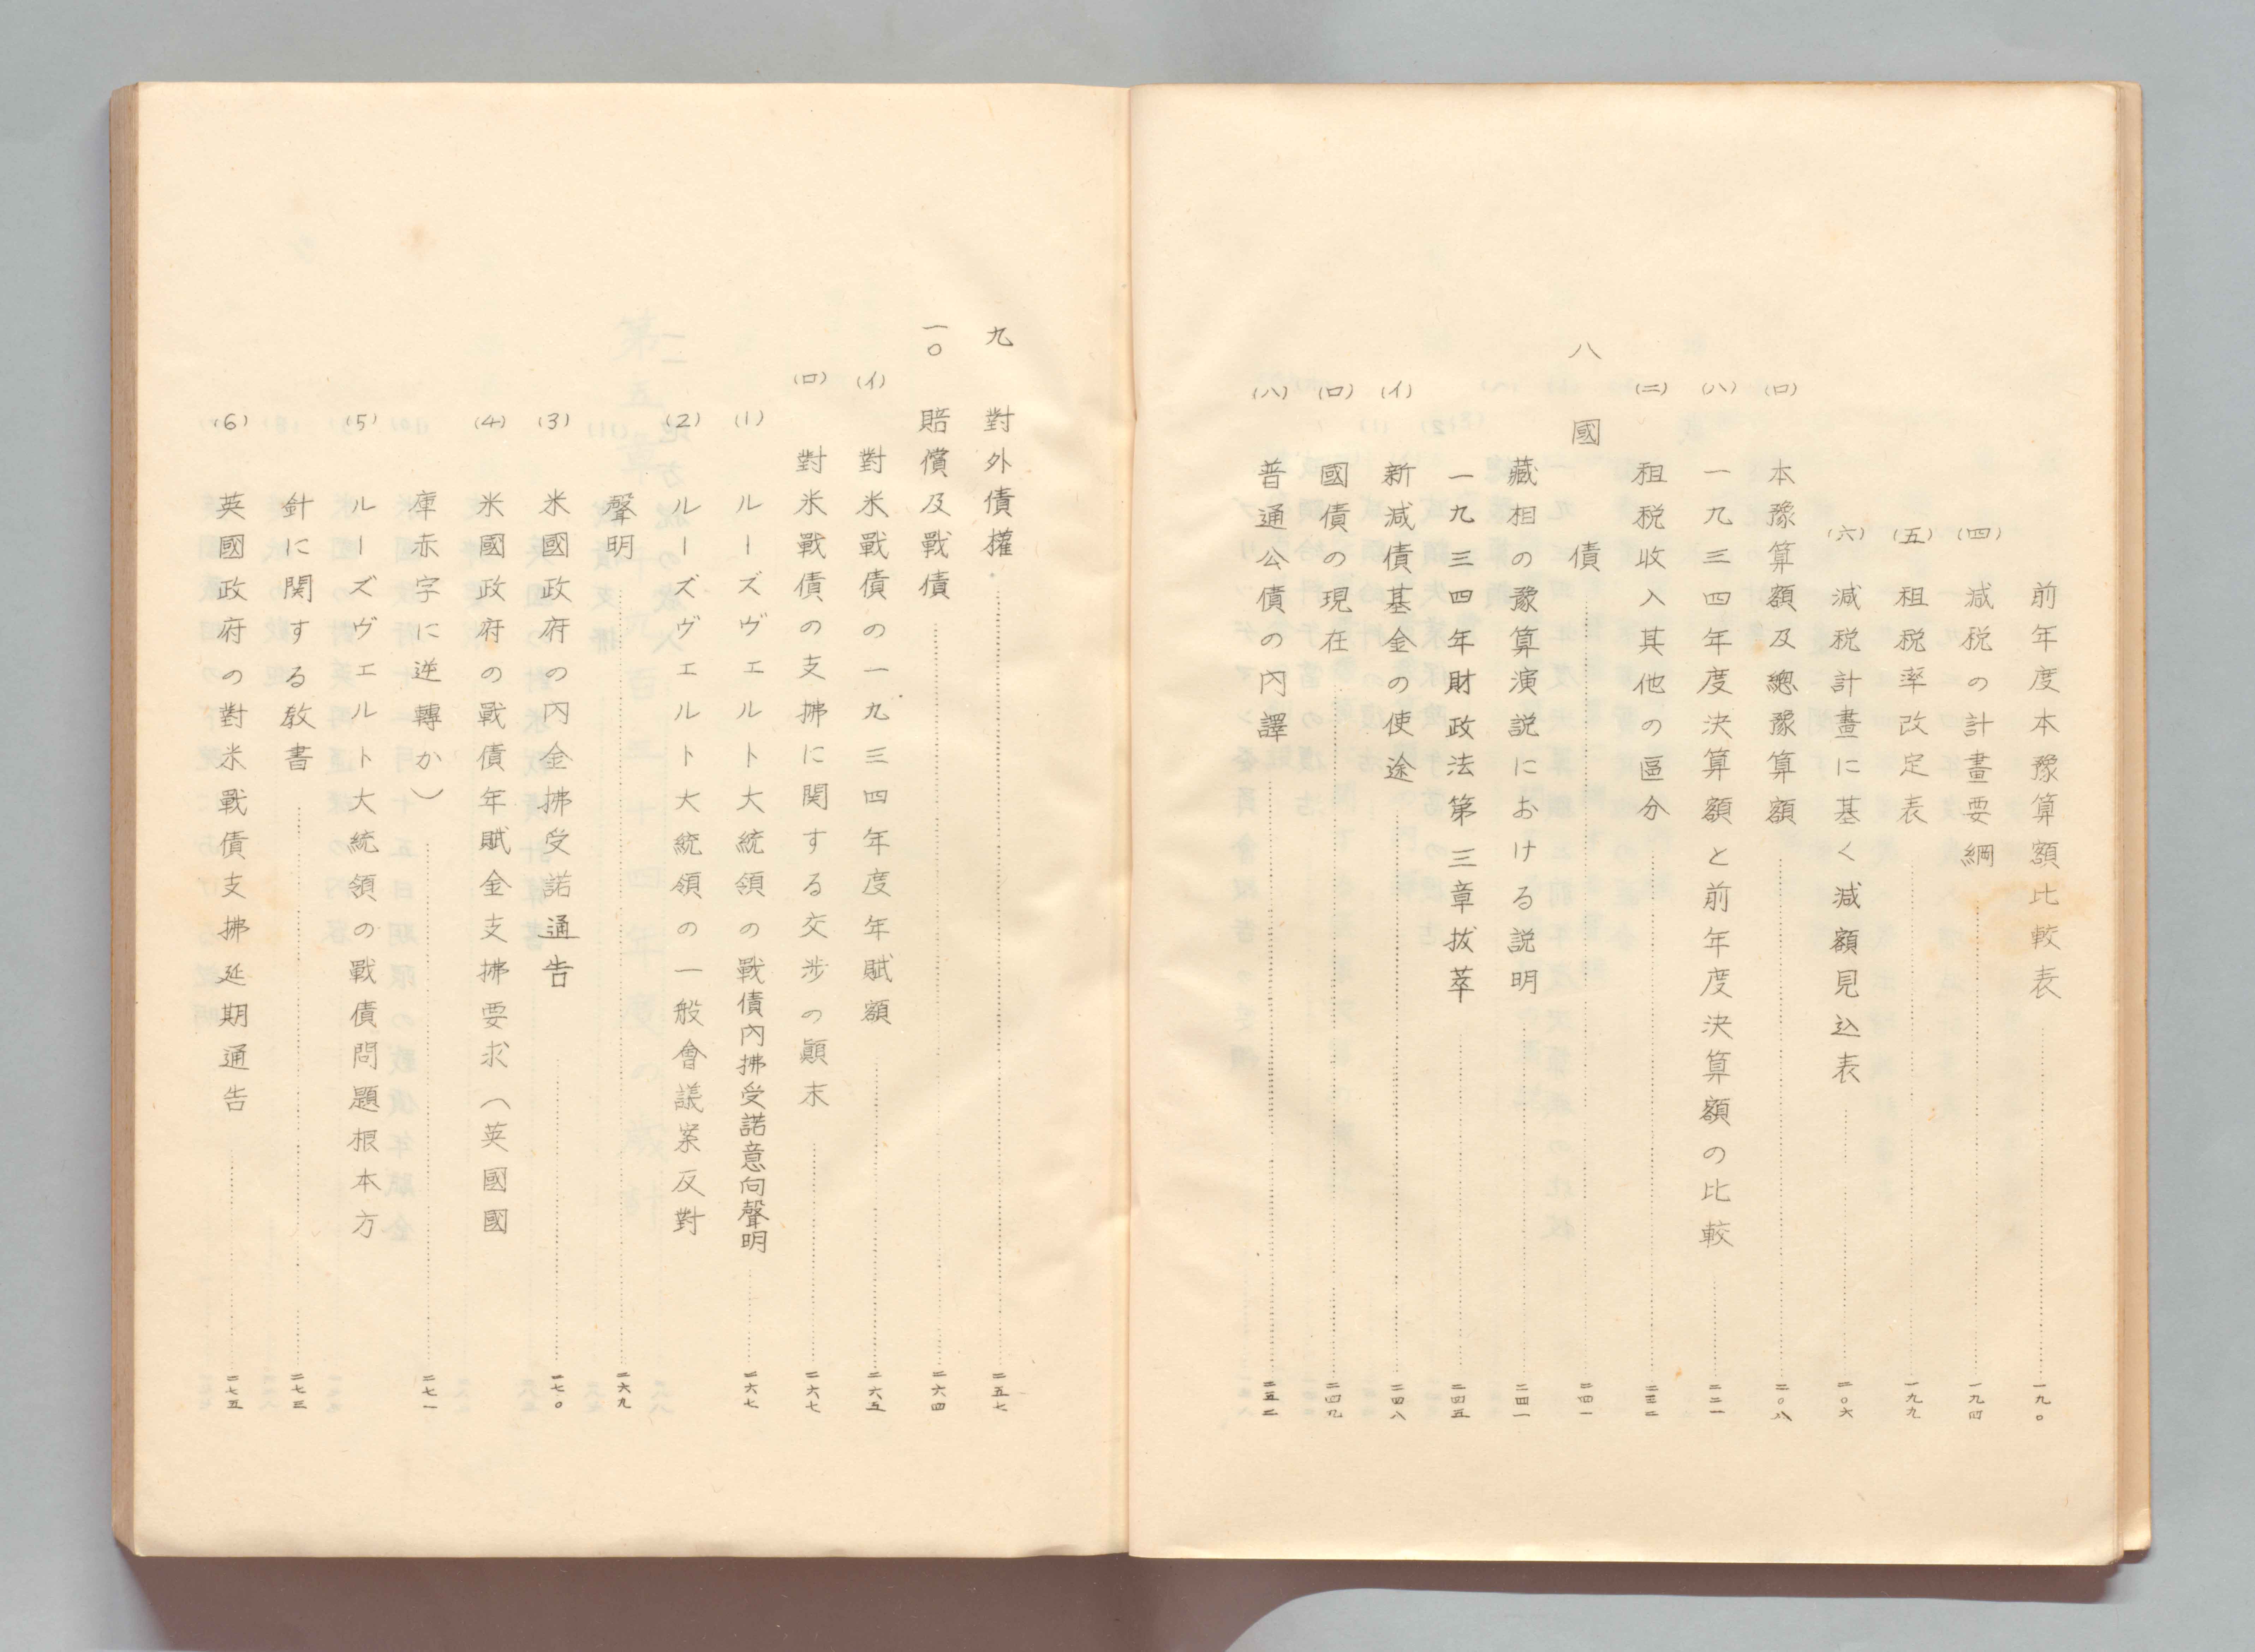 前年度本豫算額比較表……一九〇
(四) 減税の計畫要綱……一九四
(五) 租税率改定表……一九九
(六) 減税計畫に基く減額見込表……二〇六
(ロ) 本豫算額及總豫算額……二〇八
(ハ) 一九三四年度決算額と前年度決算額の比較……二二一
(ニ) 租税收入其他の區分……二三二
八 國債……二四一
藏相の豫算演説における説明……二四一
一九三四年財政法第三章拔萃……二四五
(イ) 新減債基金の使途……二四八
(ロ) 國債の現在……二四九
(ハ) 普通公債の內譯……二五二
九 對外債權……二五七
一〇 賠償及戰債……二六四
(イ) 對米戰債の一九三四年度年賦額……二六五
(ロ) 對米戰債の支拂に関する交渉の顚末……二六七
(1) ルーズヴェルト大統領の戰債內拂受諾意向聲明……二六七
(2) ルーズヴェルト大統領の一般會議案反對
聲明……二六九
(3) 米國政府の內金拂受諾通告……二七〇
(4) 米國政府の戰債年賦金支拂要求(英國國
庫赤字に逆轉か)……二七一
(5) ルーズヴェルト大統領の戰債問題根本方
針に関する敎書……二七三
(6) 英國政府の對米戰債支拂延期通告……二七五